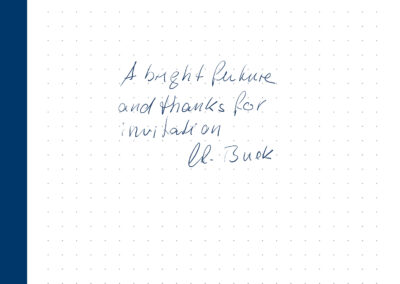 A bright future
and thanks for
invitation
U. Buck